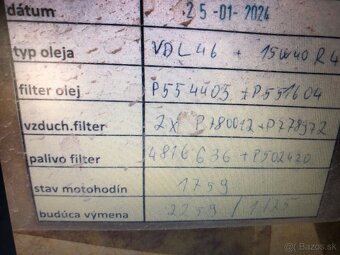 dátum 25-01-2024
typ oleja VDL46 + 15W40 R4
filter olej P554405+P551604
vzduch.filter 2x P780012+P778972
palivo filter 4816636+P502420
stav motohodín 1759
budúca výmena 2259/1/25
Bazos.sk